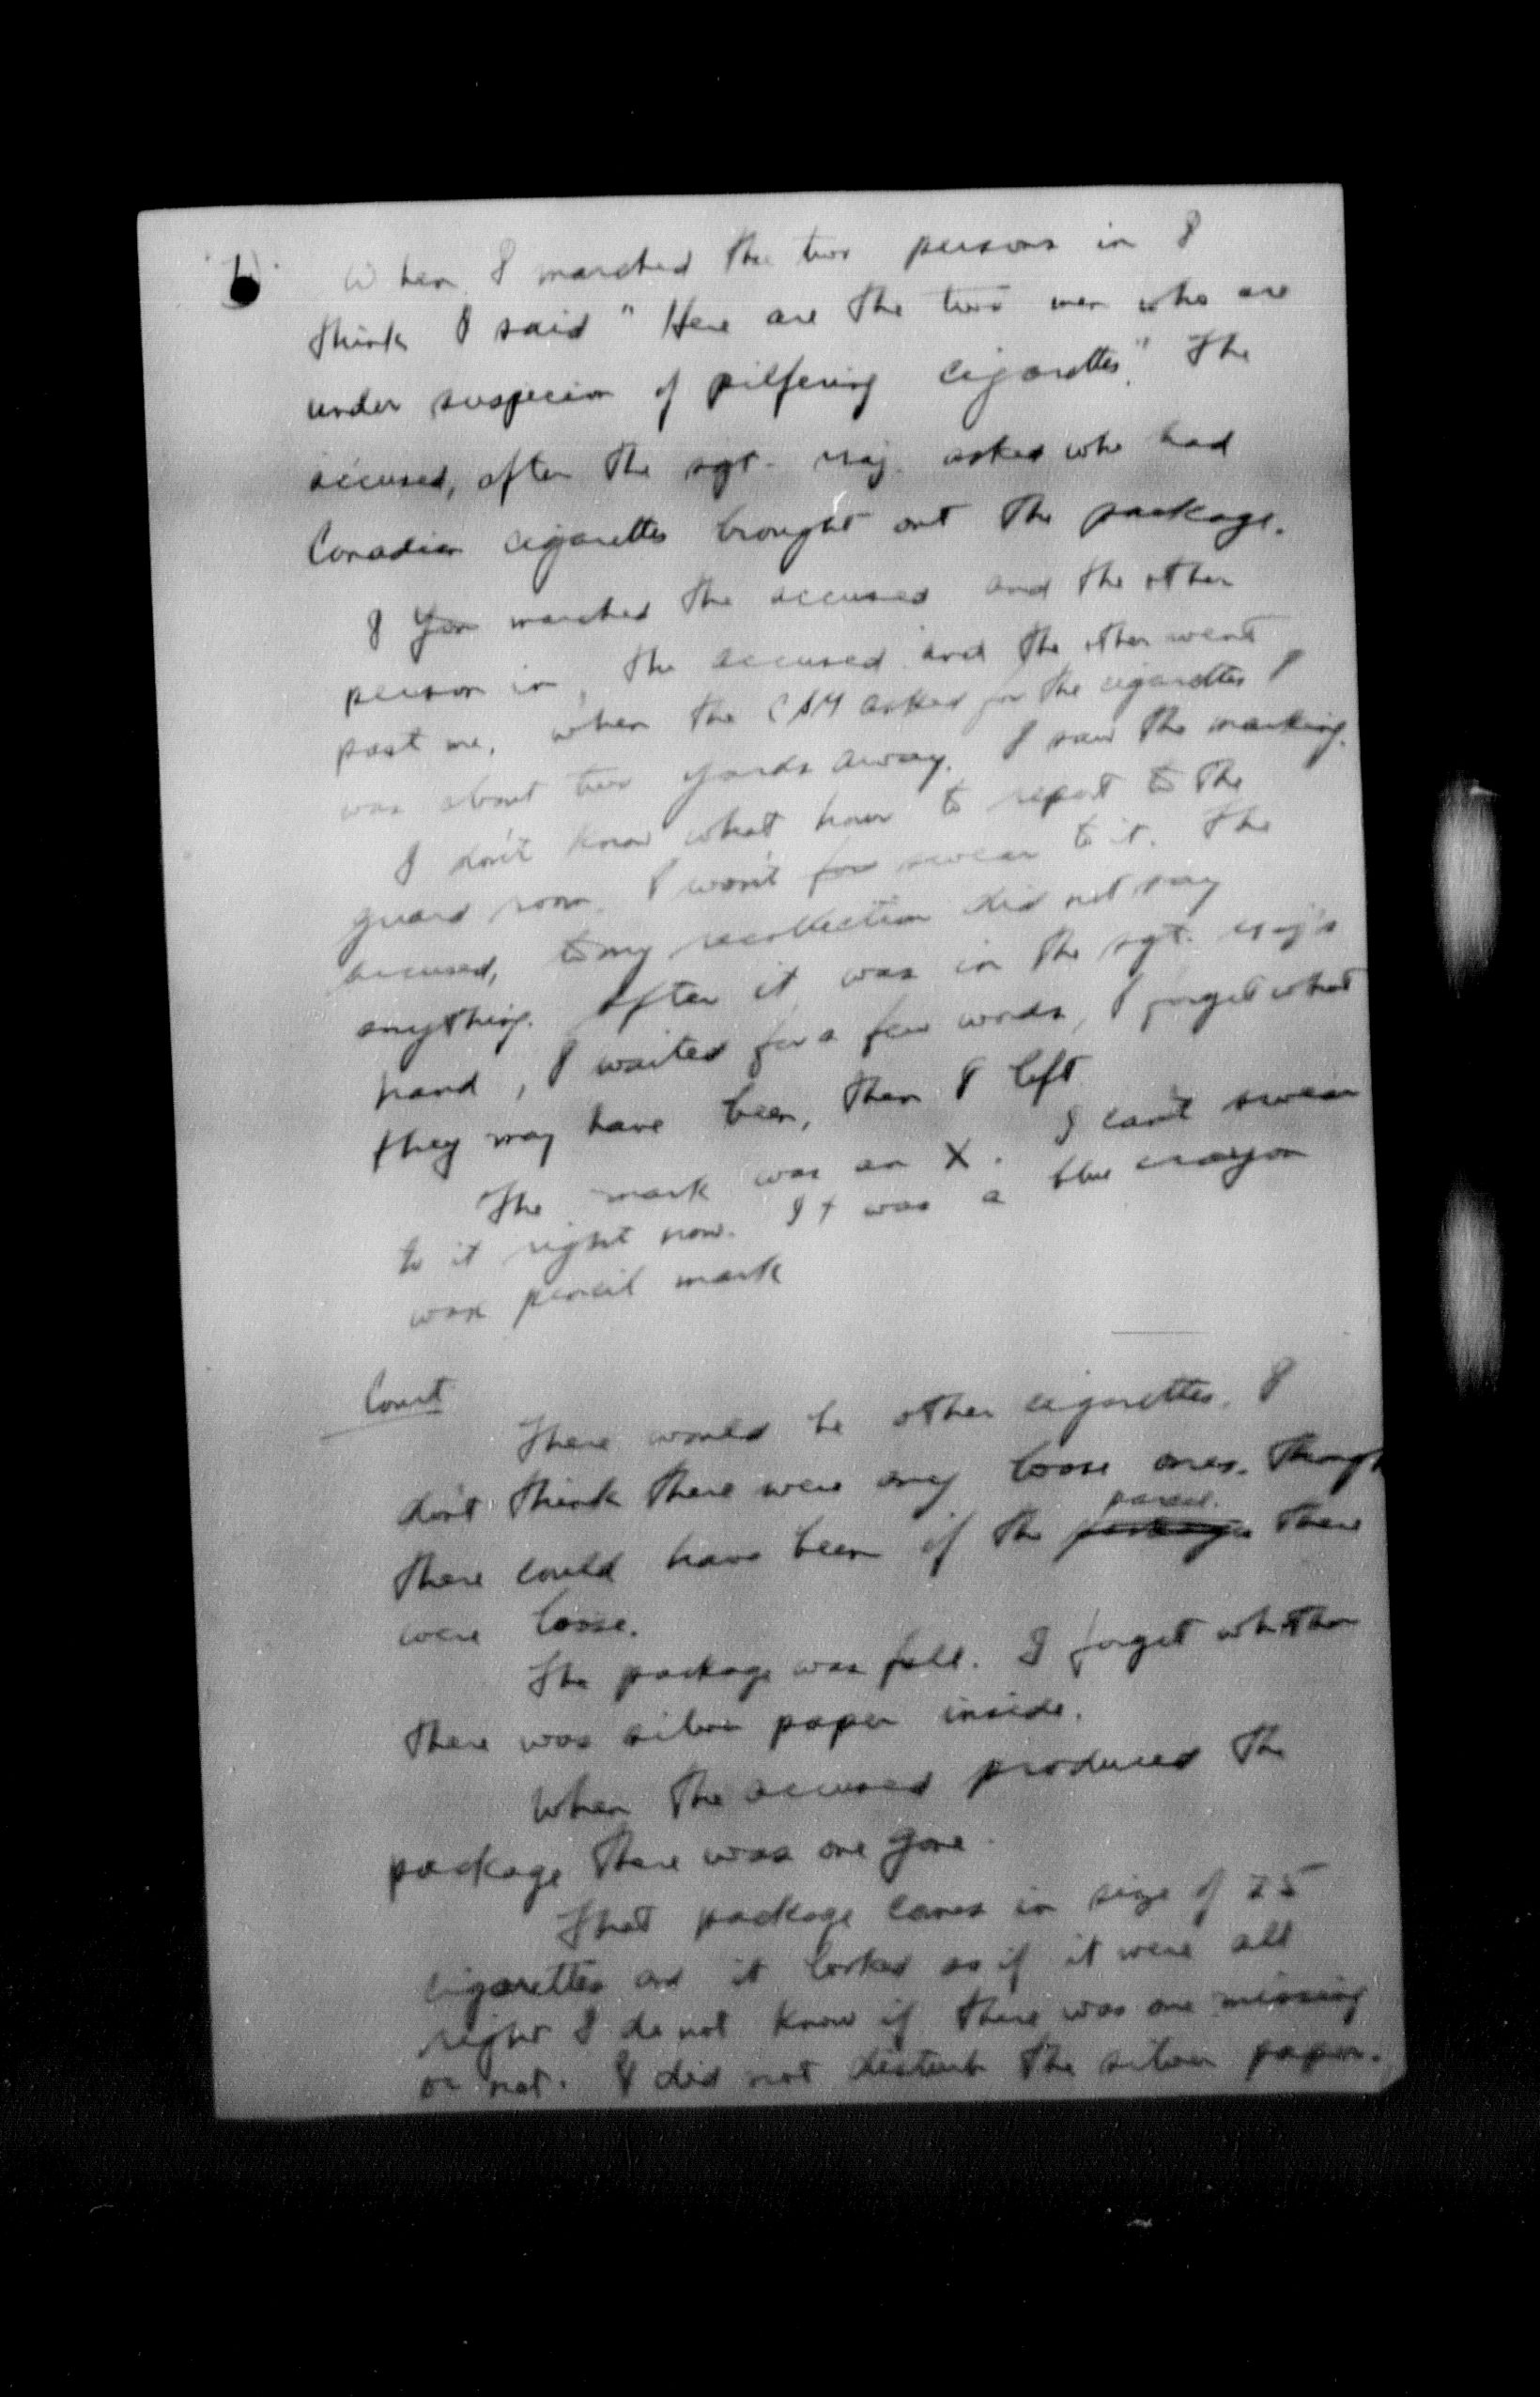 When I marched the two persons in I
think I said "Here are the two men who are
under suspecion of pilfering cigarettes." The
accused, after the sgt. Maj. asked who had
Canadian cigarettes brought out the package.
I marched the accused and the other
person in, the accused and the other went
past me, when the CSM asked for the cigarettes I
was about two yards away. I saw the marking.
I don't know what hour to report to the
guard room. I won't swear to it. The
accused, to my recollection did not say
anything. After it was in the sgt. Maj's
hand, I waited for a few words, I forget what
they may have been, then I left
The mark was an X. I can't swear
to it right now. It was a blue crayon
wax pencil mark
Court
There would be other cigarettes. I
don't think there were any loose ones. Though
there could have been if the package there
parcel.
were loose.
The package was full. I forget whether
there was silver paper inside.
When the accused produced the
package there was one gone.
That package comes in size of 25
cigarettes and it looked as if it were all
right I do not know if there was one missing
or not. I did not disturb the silver paper.